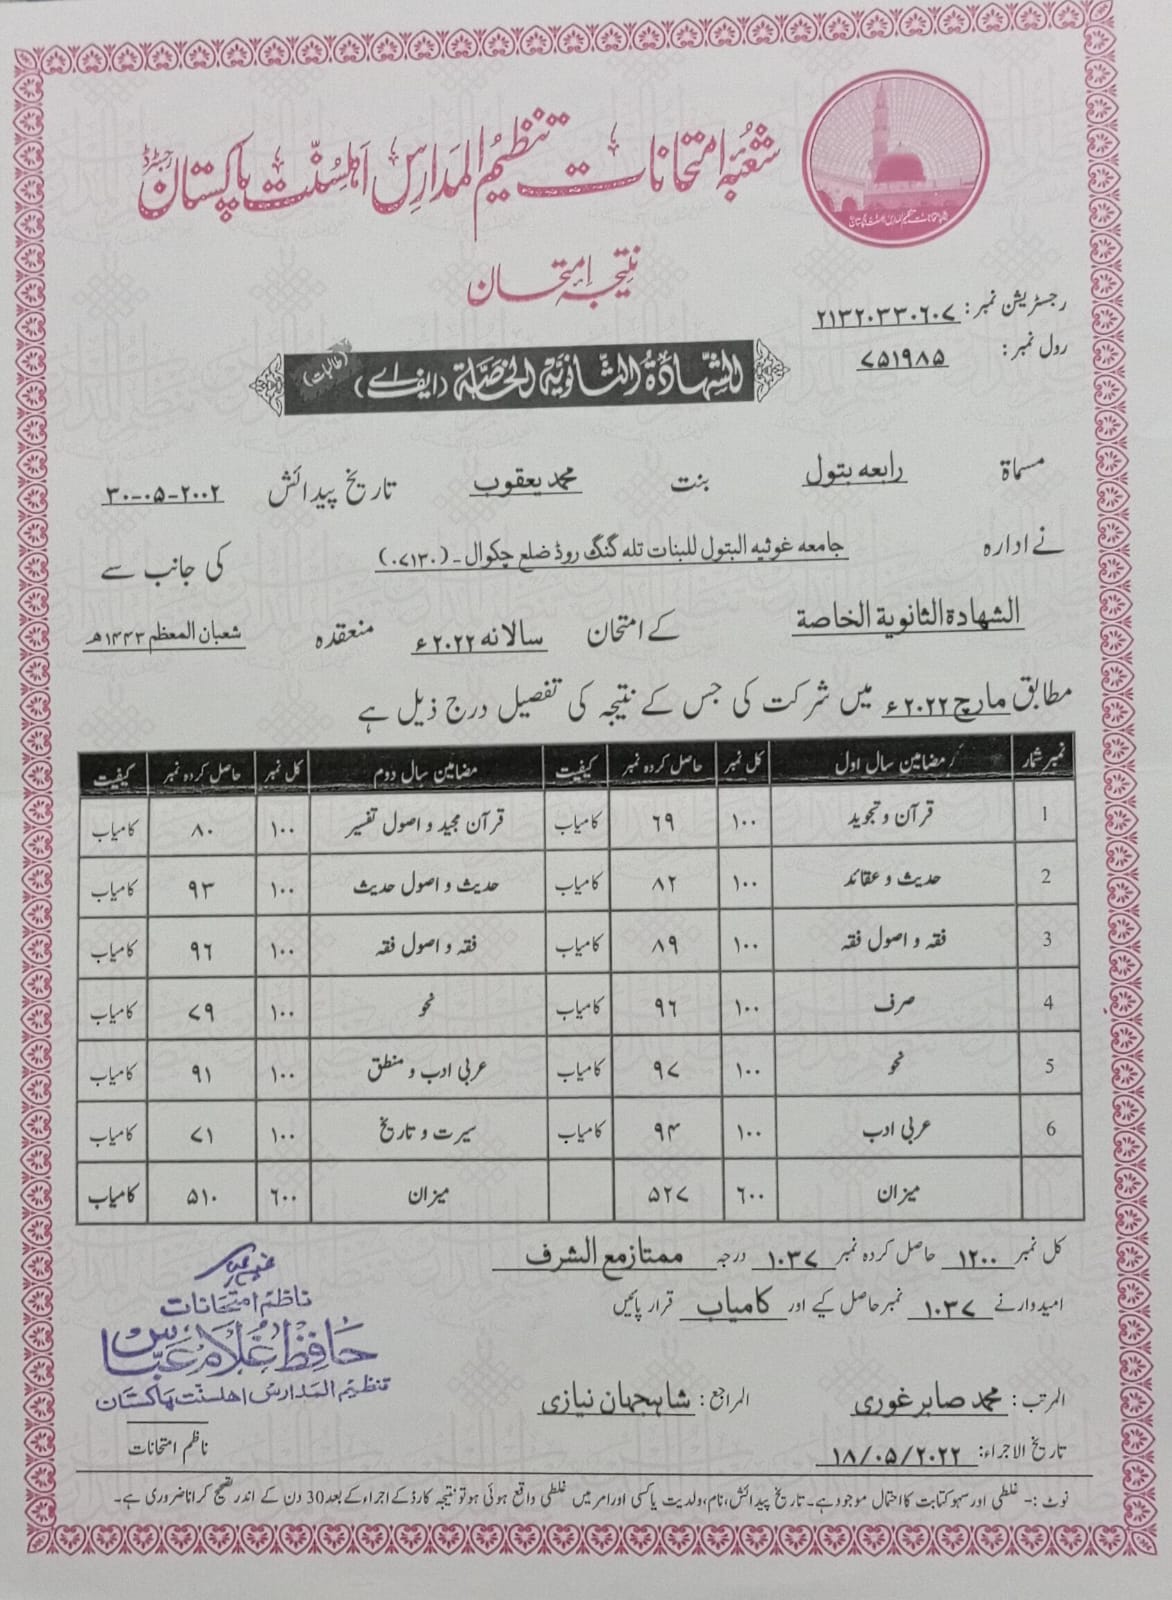 شعبۂ امتحانات تنظیم المدارس اہلسنّت پاکستان رجسٹرڈ
نتیجہ امتحان
رجسٹریشن نمبر: ۲۱۳۲۰۳۳۰۶۰۷
رول نمبر: ۷۵۱۹۸۵
الشہادۃ الثانویہ الخاصۃ (ایف اے) (طالبات)
مسماۃ رابعہ بتول بنت محمد یعقوب تاریخ پیدائش ۳۰-۰۵-۲۰۰۲
نے ادارہ جامعہ غوثیه البتول للبنات تله گنگ روڈ ضلع چکوال۔(۰۷۱۳۰) کی جانب سے
الشهادة الثانوية الخاصة کے امتحان سالانه ۲۰۲۲ء منعقدہ شعبان المعظم ۱۴۴۳ھ
مطابق مارچ ۲۰۲۲ء میں شرکت کی جس کے نتیجہ کی تفصیل درج ذیل ہے
نمبر شمار مضامین سال اول کل نمبر حاصل کردہ نمبر کیفیت مضامین سال دوم کل نمبر حاصل کردہ نمبر کیفیت
1 قرآن و تجوید ۱۰۰ ۶۹ کامیاب قرآن مجید و اصول تفسیر ۱۰۰ ۸۰ کامیاب
2 حدیث و عقائد ۱۰۰ ۸۲ کامیاب حدیث و اصول حدیث ۱۰۰ ۹۳ کامیاب
3 فقہ و اصول فقہ ۱۰۰ ۸۹ کامیاب فقہ و اصول فقہ ۱۰۰ ۹۶ کامیاب
4 صرف ۱۰۰ ۹۶ کامیاب نحو ۱۰۰ ۷۹ کامیاب
5 نحو ۱۰۰ ۹۷ کامیاب عربی ادب و منطق ۱۰۰ ۹۱ کامیاب
6 عربی ادب ۱۰۰ ۹۴ کامیاب سیرت و تاریخ ۱۰۰ ۷۱ کامیاب
میزان ۶۰۰ ۵۲۷ میزان ۶۰۰ ۵۱۰ کامیاب
کل نمبر ۱۲۰۰ حاصل کردہ نمبر ۱۰۳۷ درجہ ممتاز مع الشرف
امیدوار نے ۱۰۳۷ نمبر حاصل کیے اور کامیاب قرار پائیں
ناظم امتحانات
حافظ غلام عبّاس
تنظیم المدارس اهلسنت پاکستان
المرتب: محمد صابر غوری المراجع: شاہجہان نیازی
تاریخ الاجراء: ۱۸/۰۵/۲۰۲۲ ناظم امتحانات
نوٹ :- غلطی اور سہو کتابت کا احتمال موجود ہے۔ تاریخ پیدائش، نام، ولدیت یا کسی اور امر میں غلطی واقع ہوئی ہو تو نتیجہ کارڈ کے اجراء کے بعد 30 دن کے اندر تصحیح کرانا ضروری ہے۔